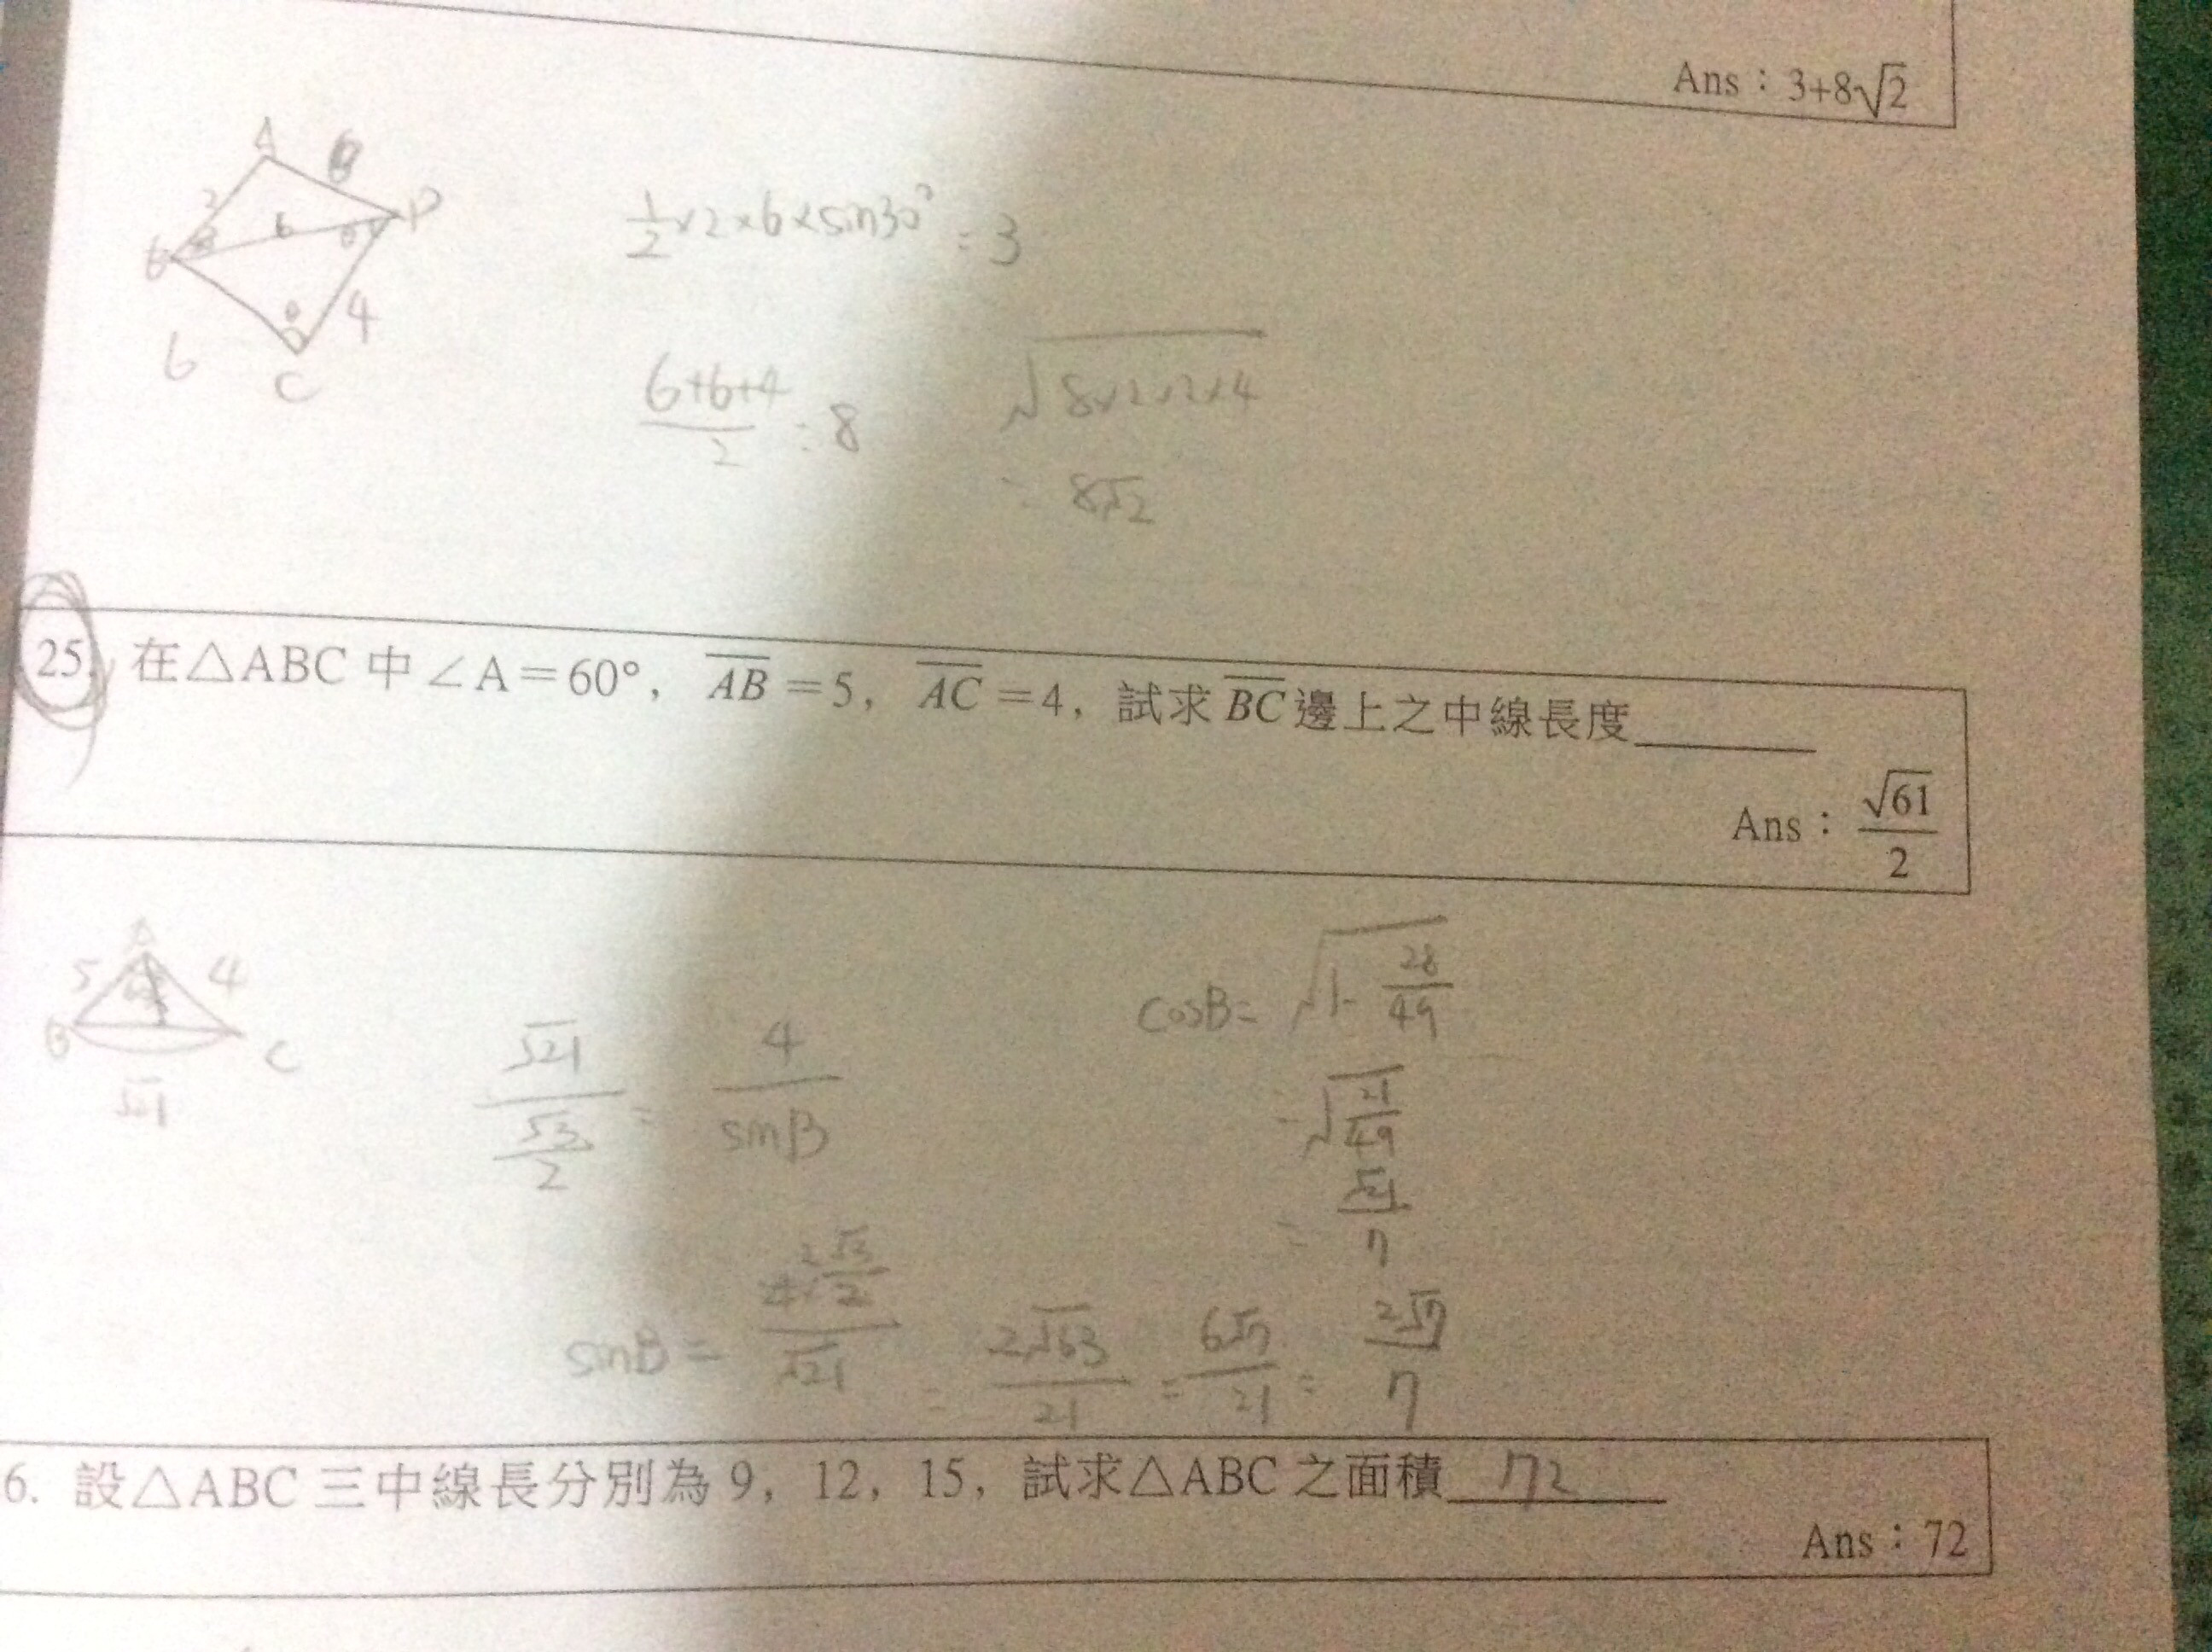 Ans：3+8√2
A
2
6
D
6
B
4
6
C
1/2×2×6×sin30° = 3
(6+6+4)/2 = 8
√(8×2×2×4)
= 8√2
25. 在△ABC 中∠A＝60°，AB＝5，AC＝4，試求 BC 邊上之中線長度______
Ans：√61/2
A
5
4
B
C
√21
√21/(√3/2) = 4/sinB
cosB = √(1-28/49)
= √(21/49)
= √21/7
sinB = (4×√3/2)/√21 = 2√63/21 = 6√7/21 = 2√7/7
6. 設△ABC 三中線長分別為 9，12，15，試求△ABC 之面積 72
Ans：72